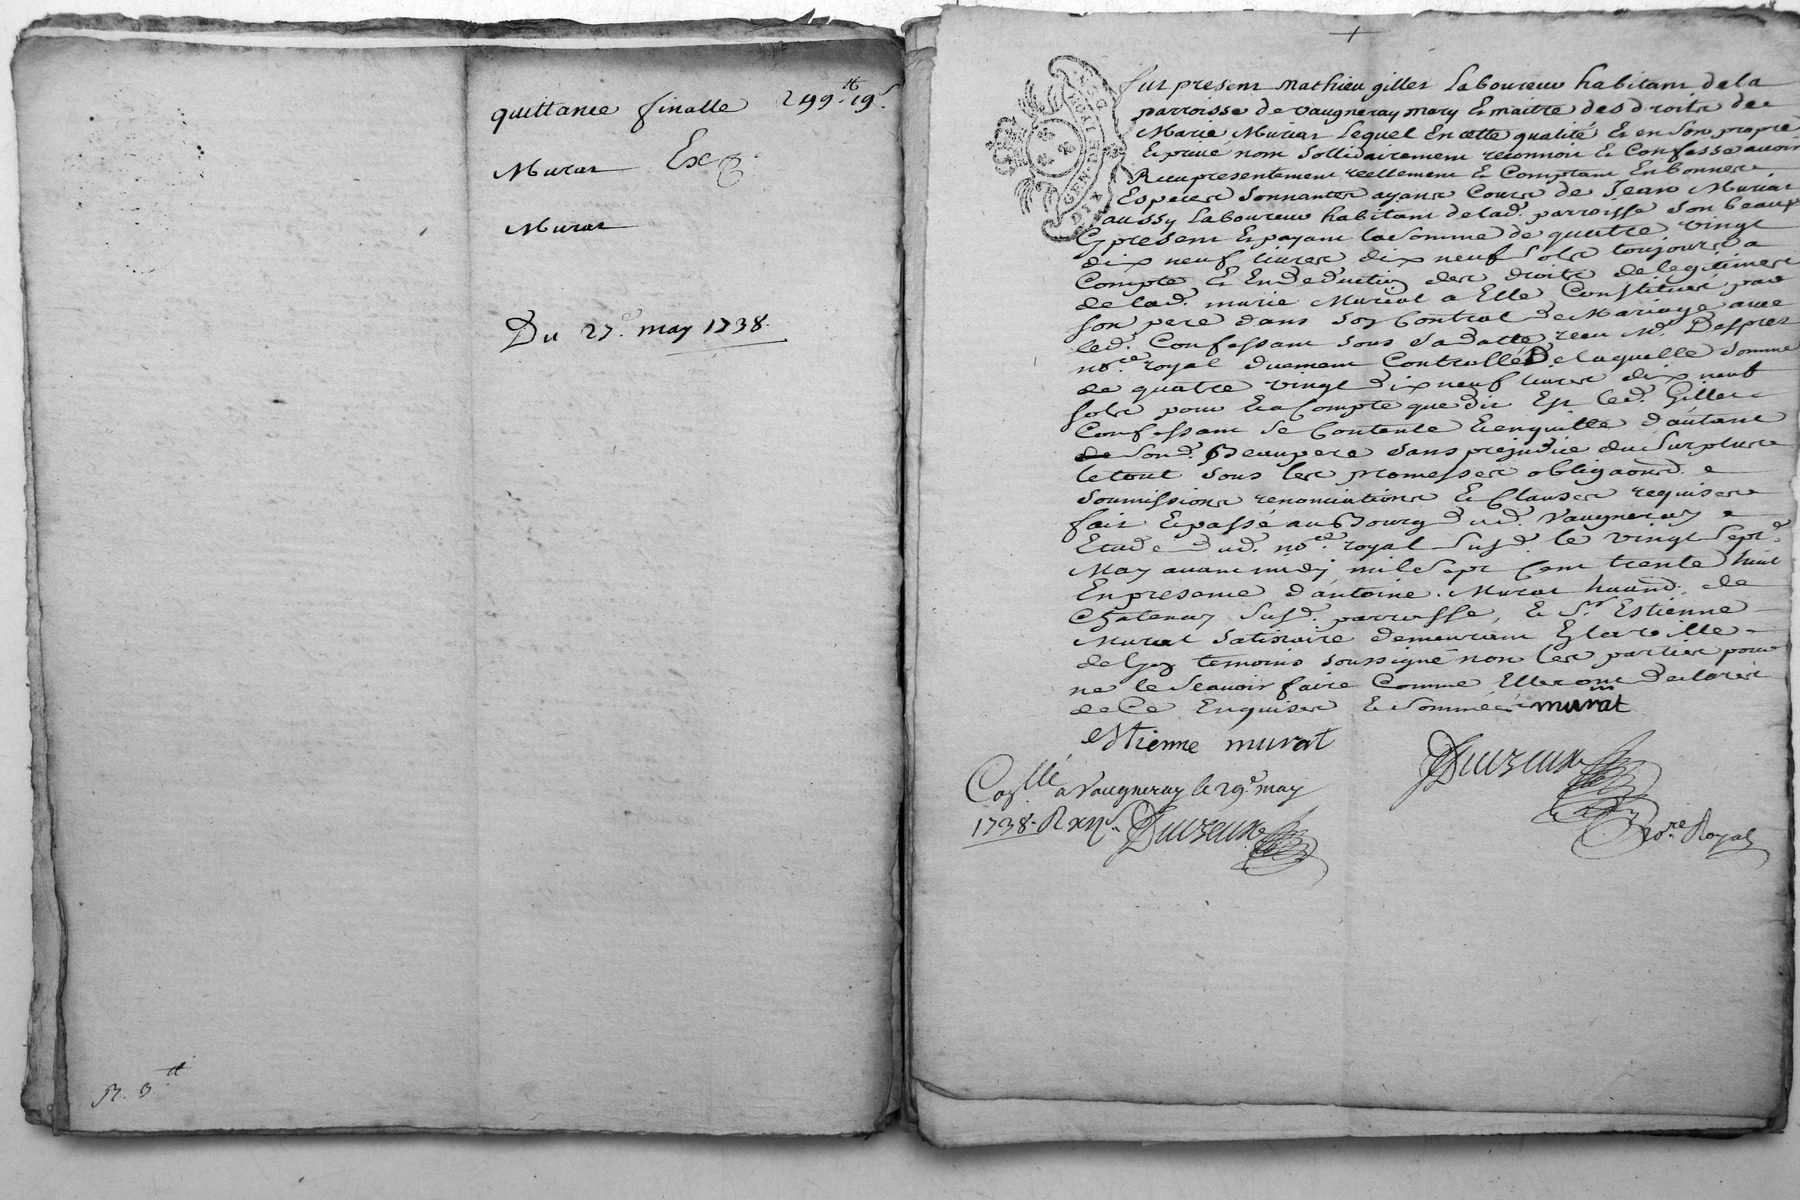 quittance finalle 299tt 19s
Murat Exp
Murat
Du 27e may 1738.
R. 3.tt
GEN. DE LYON
DIX
fut present Mathieu gilles Laboureur habitant de la
parroisse de vaugneray mary Et maitre des droits de
Marie Murat Lequel En cette qualité Et en son propre
Et privé nom sollidairement reconnoit Et Confesse avoir
Receu presentement reellement Et Comptant En bonnes
Especes sonnantes ayant Cours de Jean Murat
aussy Laboureur habitant de lad. parroisse son beaup
Cy present Et payant la somme de quatre vingt
dix neuf livres dix neuf sols toujours a
Compte Et En deduction des droits de legitimes
de lad. marie Murat a Elle Constitués par
son pere dans son Contrat de Mariage avec
led. Confessant sous sa datte receu Me. Desprez
nore. royal duement Controllé De laquelle somme
de quatre vingt dix neuf livres dix neuf
sols pour Et a Compte que dit Est led. Gilles
Confessant se Contente Et en quitte d'autant
sond. Beaupere sans prejudice du surplus
le tout sous les promesses obligaons. e
soumissions renonciations Et Clauses requises
fait Et passé au Bourg dud. Vaugneray e
Etude dud. nore. royal susd. le vingt sept
May avant midy mil sept Cent trente huit
En presence d'antoine Murat habnt. de
Chatenay susd. parroisse, Et Sr. Estienne
Murat demeurant En la ville
de Lyon temoins soussigné non les parties pour
ne le scavoir faire Comme Elles ont declaré
de Ce Enquises Et sommées murat
estienne murat
Conllé a Vaugneray le 29e may
1738. R xii s. Duizeux
Duizeux
nore. Royal